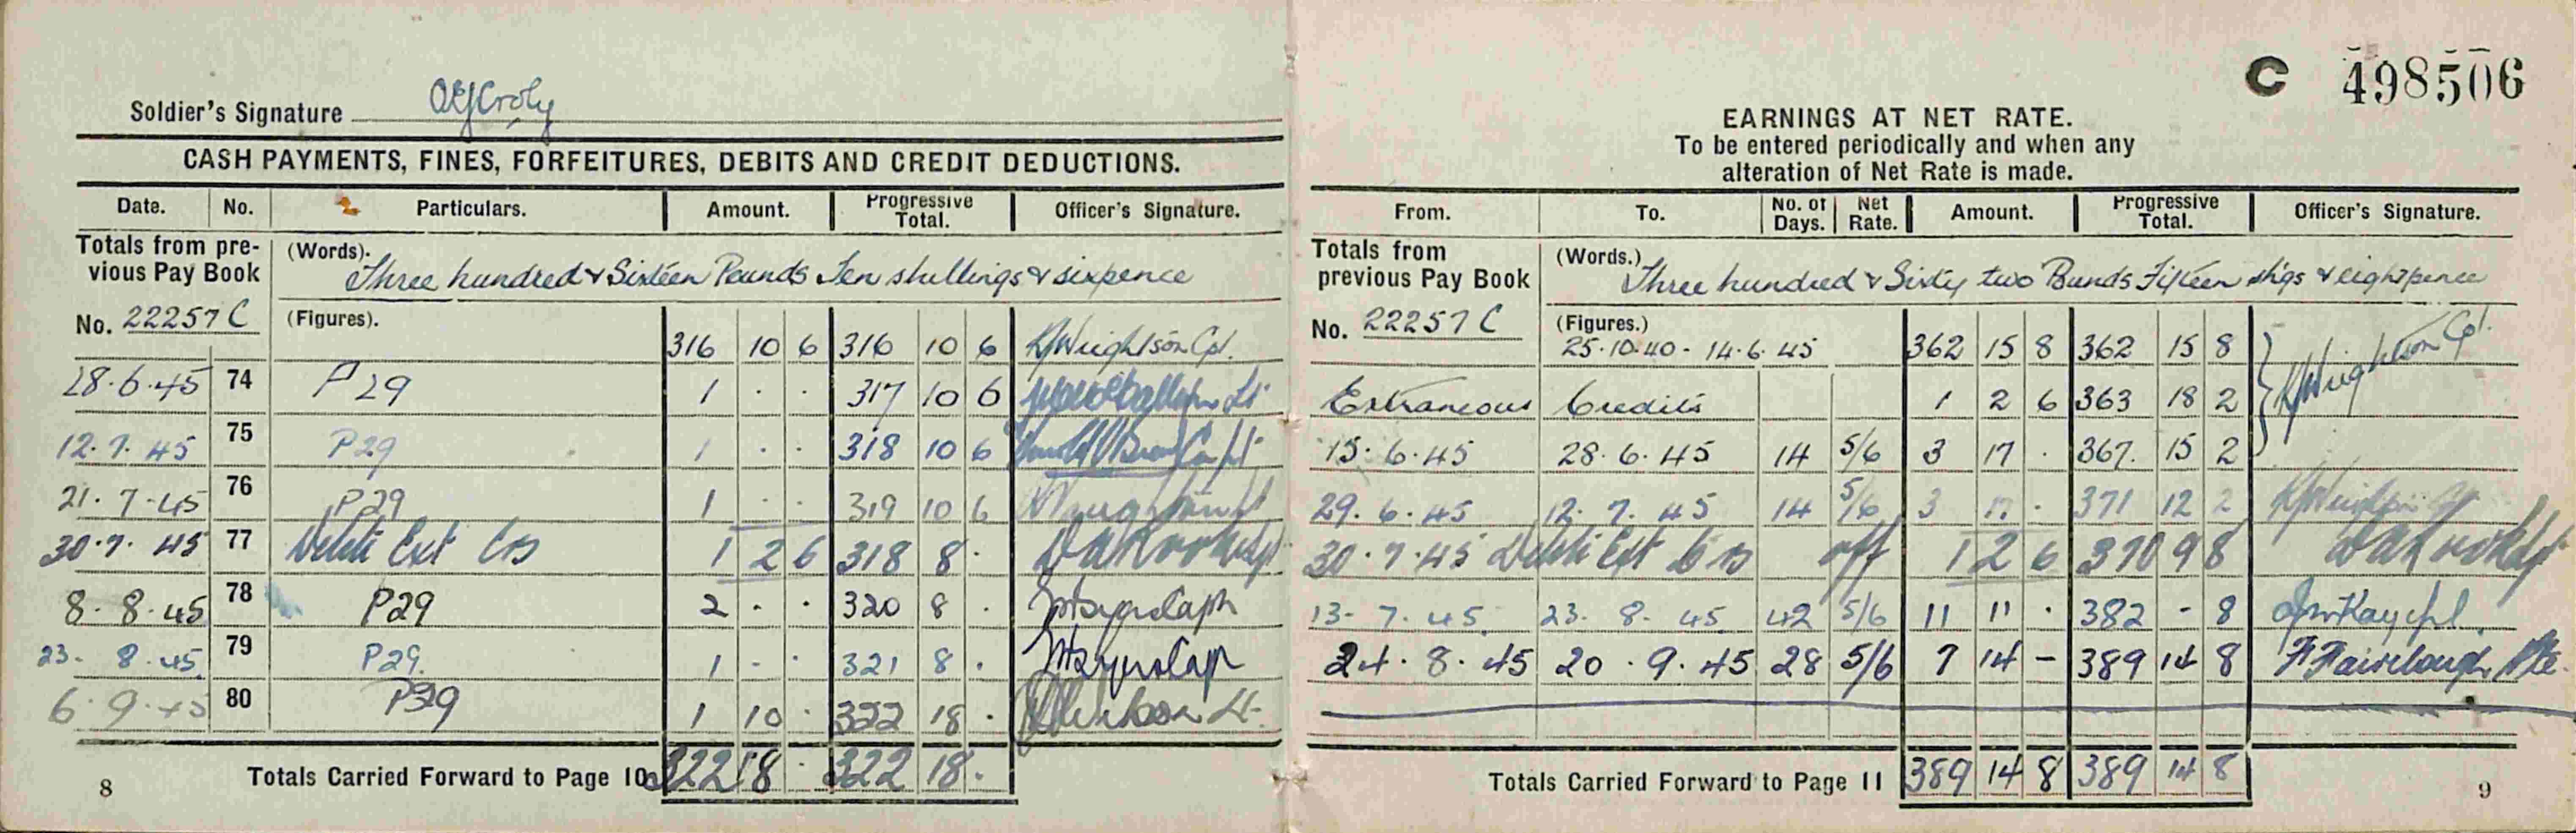 Soldier's Signature
CASH PAYMENTS, FINES, FORFEITURES, DEBITS AND CREDIT DEDUCTIONS.
Date. No. Particulars. Amount. Progressive Total. Officer's Signature.
Totals from pre-
vious Pay Book
No. 22257 C
(Words).
Three hundred & Sixteen Pounds Ten shillings & sixpence
(Figures).
316 10 6 316 10 6 Wrightson Cpl.
28.6.45 74 P29 1 . . 317 10 6 Lt
12.7.45 75 P29 1 . . 318 10 6 Capt
21.7.45 76 P29 1 . . 319 10 6
30.7.45 77 Ext Crs 1 2 6 318 8 .
8.8.45 78 P29 2 . . 320 8 .
23.8.45 79 P29. 1 - . 321 8 .
6.9.45 80 P39 1 10 . 322 18 . Lt.
Totals Carried Forward to Page 10 322 18 . 322 18 .
8
C 498506
EARNINGS AT NET RATE.
To be entered periodically and when any
alteration of Net Rate is made.
From. To. No. of Days. Net Rate. Amount. Progressive Total. Officer's Signature.
Totals from
previous Pay Book
No. 22257 C
(Words.)
Three hundred & Sixty two Pounds Fifteen shgs & eightpence
(Figures.)
25.10.40 - 14.6.45 362 15 8 362 15 8 Wrightson Cpl.
Extraneous Credits 1 2 6 363 18 2
15.6.45 28.6.45 14 5/6 3 17 . 367. 15 2
29.6.45 12.7.45 14 5/6 3 17 . 371 12 2
30.7.45 Ext Crs off 1 2 6 370 9 8
13-7.45. 23.8.45. 42 5/6 11 11 . 382 - 8 Kay Cpl.
24.8.45 20.9.45 28 5/6 7 14 - 389 14 8 F Fairclough Pte
Totals Carried Forward to Page 11 389 14 8 389 14 8
9